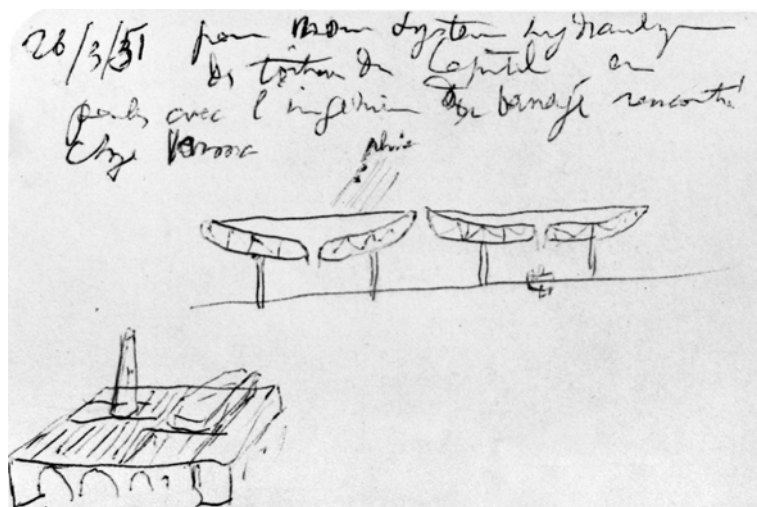 26/3/51 pour mon système hydraulique
des toitures du Capitol, en
parler avec l'ingénieur du barrage rencontré
chez Varma
pluie